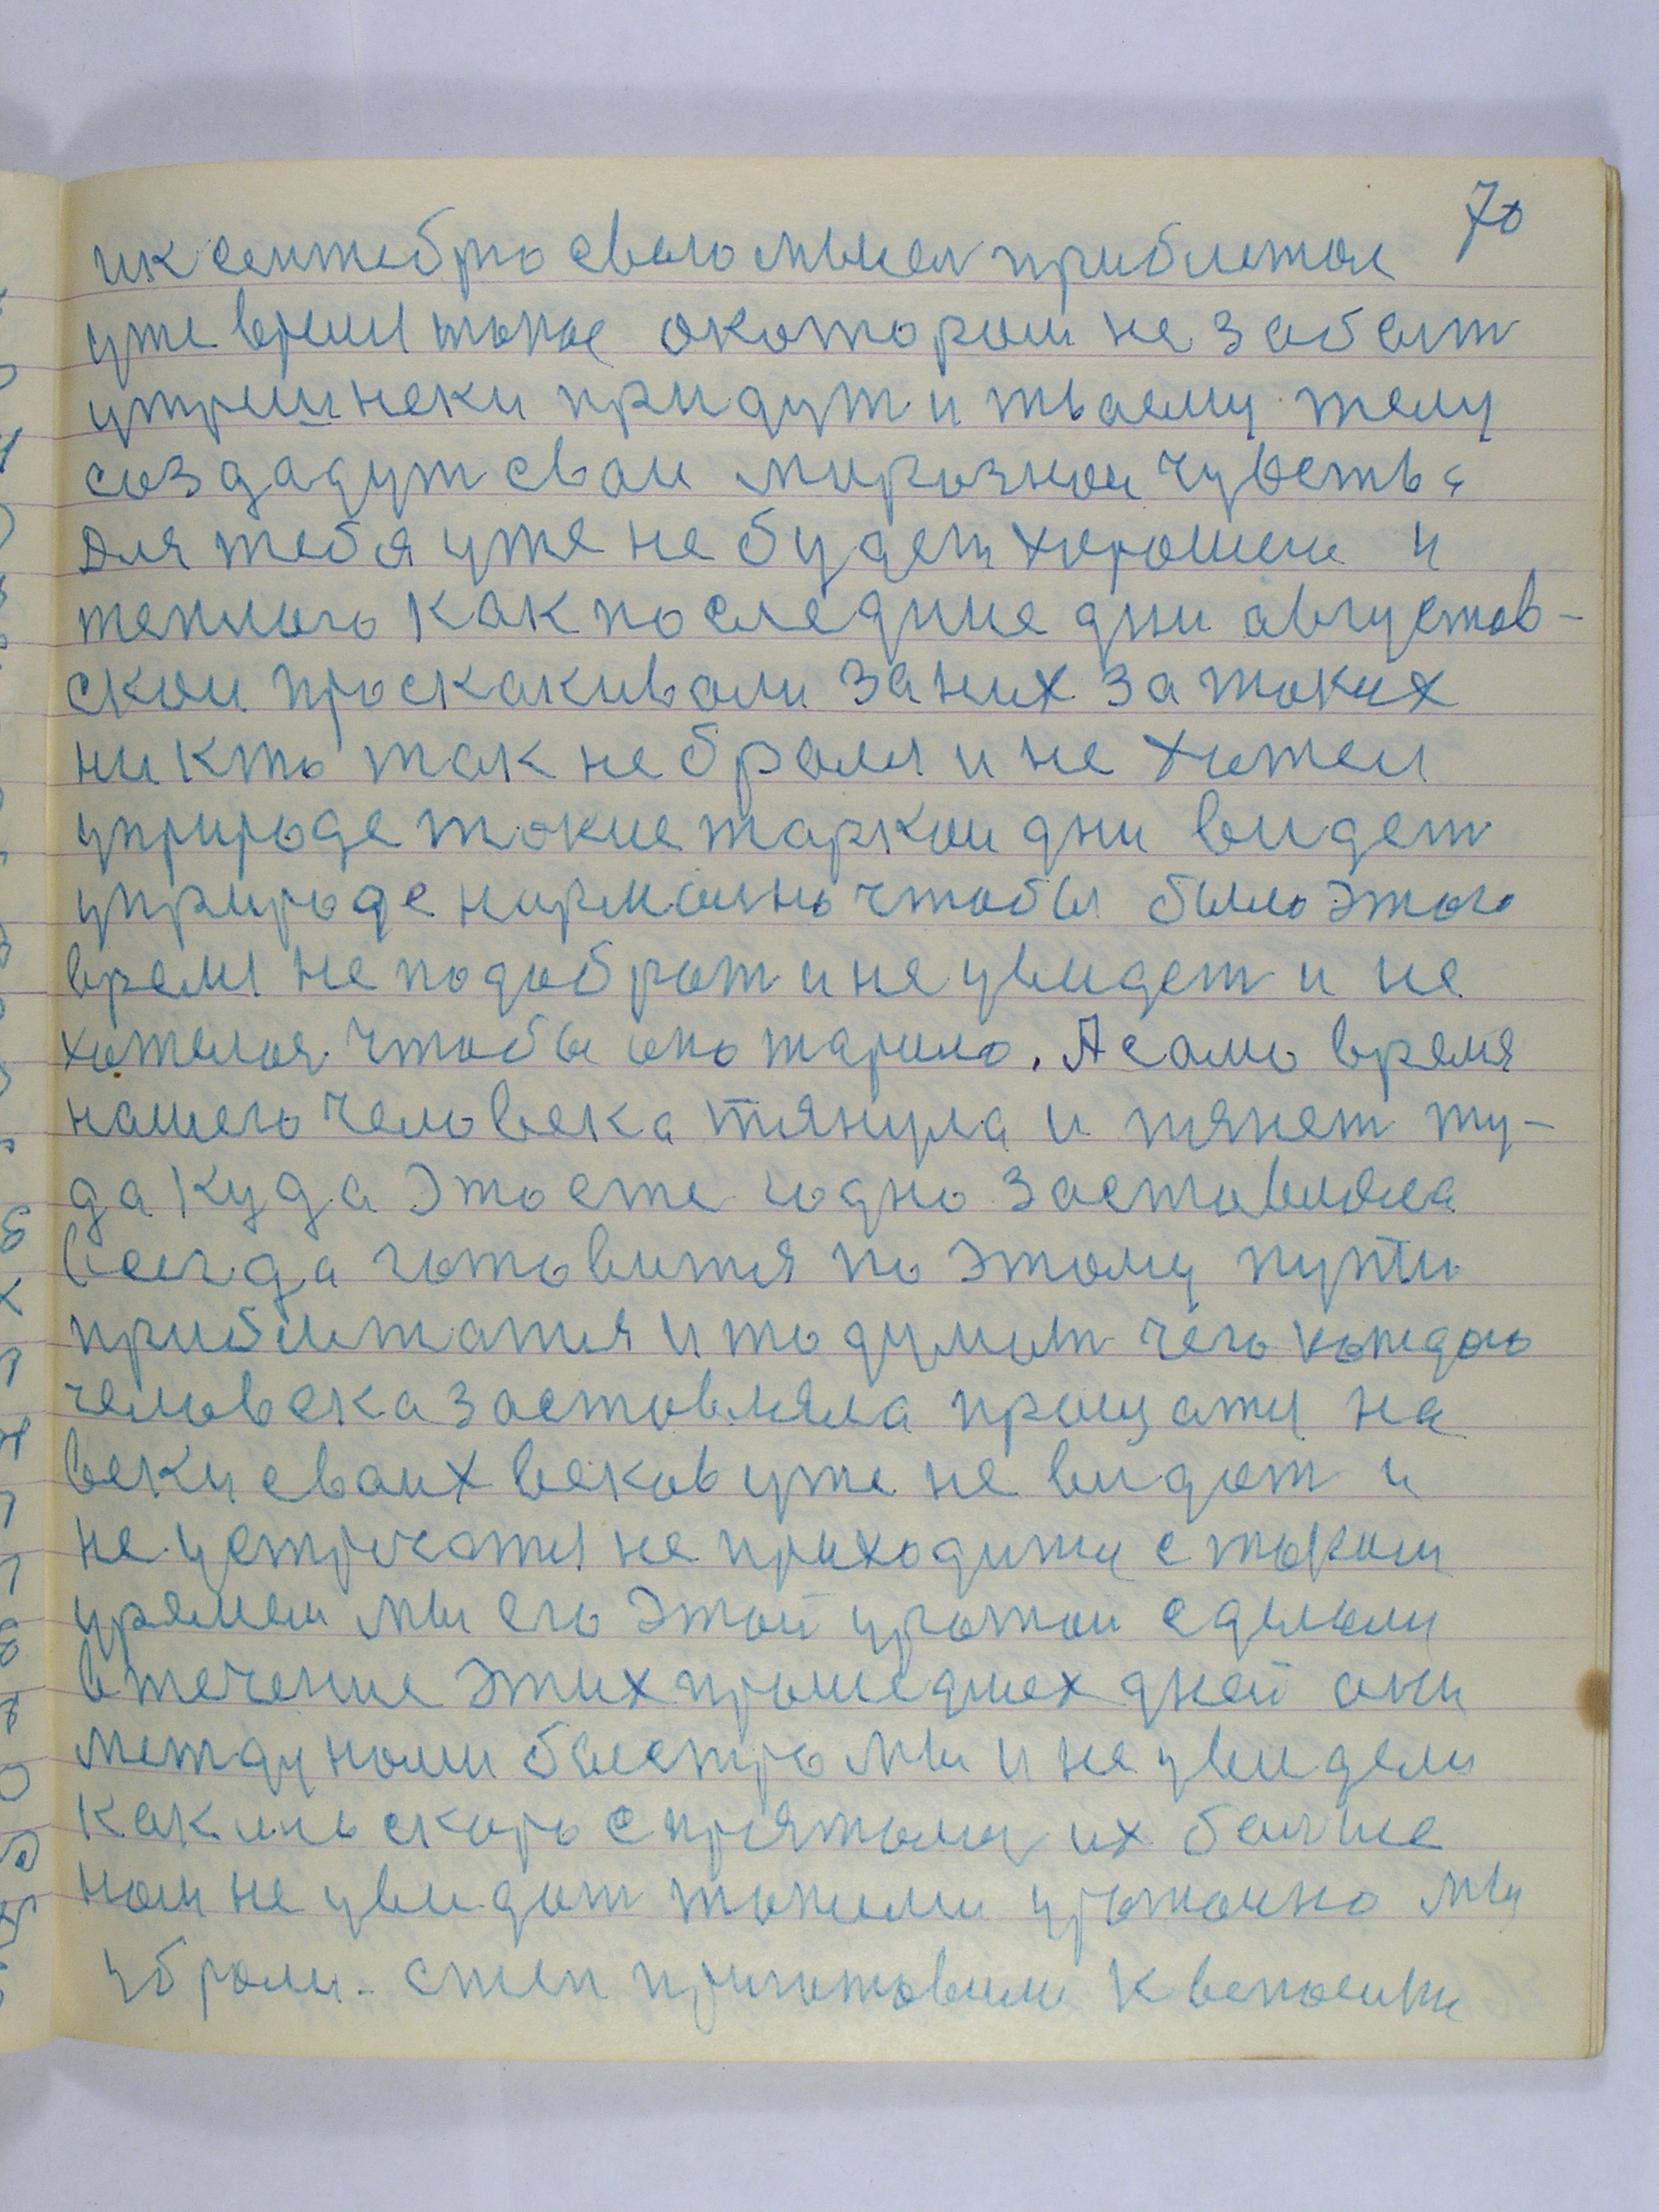 70
ик сентебрю сваю мысел приблетои
уже время такое окотором не забыт
утрешнеки придут и тваему телу
создадут сваи мирозной чувства
для тебя уже не будет хорошеи и
теплого как последние дни августов-
скои проскакивали за них за таких
никто так не брался и не хотел
уприроде такие жаркои дни видет
уприроде нормално чтобы было этого
время не подобрат и не увидет и не
хотелоя чтобы оно жарило. А само время
нашего человека тянула и тянет ту-
да куда это еже годно заставляла
всегда готовится по этому пути
приближатия и то думат чего каждого
человека заставляла прощатя на
веки сваих веков уже не видат и
не устречатя не приходитя с таким
уремем мы его этой уротои сделали
втечение этих прошедшех дней они
между номи быстро мы и не увидели
как оно скоро спряталия их болше
ном не увидат такими урожаино мы
уброли. степ приготовили к вспашки